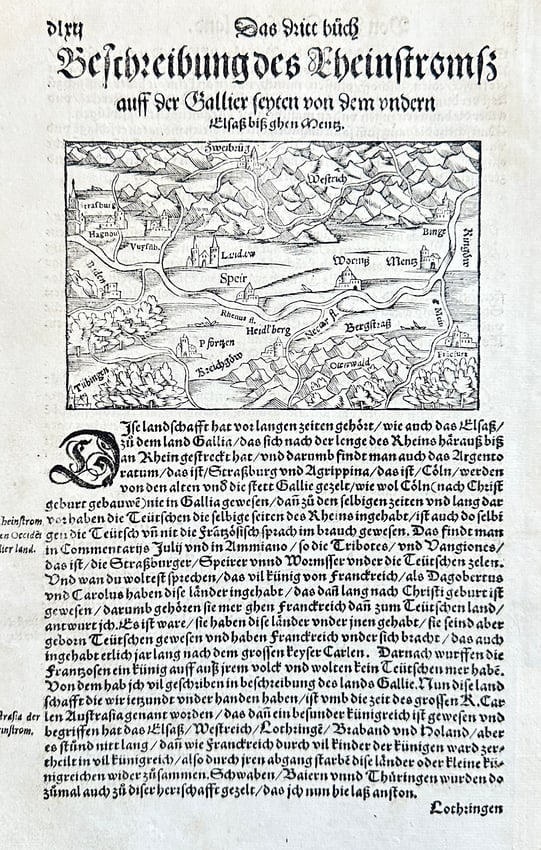 dlxij
Das dritt bůch
Beschreibung des Rheinstromß
auff der Gallier seyten von dem vndern
Elsaß biß ghen Mentz.
Zweibrüg
Westrich
Strasburg
Hagnou
Binge
Ringöw
Landaw
Wormß
Mentz
Speir
Rhenus fl.
Heidlberg
Neccar fl.
Bergstraß
Mein
Pfortzen
Kreichgöw
Otenwald
Tübingen
DIse landschafft hat vor langen zeiten gehört / wie auch das Elsaß /
zů dem land Gallia / das sich nach der lenge des Rheins hårauß biß
an Rhein gestreckt hat / vnd darumb findt man auch das Argento
ratum / das ist / Straßburg vnd Agrippina / das ist / Cöln / werden
von den alten vnd die stett Gallie gezelt / wie wol Cöln (nach Christ
geburt gebauwē) nie in Gallia gewesen / dañ zů den selbigen zeiten vnd lang dar
vor haben die Teütschen die selbige seiten des Rheins ingehabt / ist auch do selbi
gen die Teütsch vñ nit die Frantzösisch sprach im brauch gewesen. Das findt man
in Commentarijs Julij vnd in Ammiano / so die Tribotes / vnd Vangiones /
das ist / die Straßburger / Speirer vnnd Wormsser vnder die Teütschen zelen.
Vnd wan du woltest sprechen / das vil künig von Franckreich / als Dagobertus
vnd Carolus haben dise länder ingehabt / das dañ lang nach Christi geburt ist
gewesen / darumb gehören sie mer ghen Franckreich dañ zum Teütschen land /
antwurt ich. Es ist ware / sie haben dise länder vnder jnen gehabt / sie seind aber
geborn Teütschen gewesen vnd haben Franckreich vnder sich bracht / das auch
ingehabt etlich jar lang nach dem grossen keyser Carlen. Darnach wurffen die
Frantzosen ein künig auff auß jrem volck vnd wolten kein Teütschen mer habē.
Von dem hab jch vil geschriben in beschreibung des lands Gallie. Nun dise land
schafft die wir ietzundt vnder handen haben / ist vmb die zeit des grossen K. Car
len Austrasia genant worden / das dañ ein besunder künigreich ist gewesen vnd
begriffen hat das Elsaß / Westreich / Lothringē / Braband vnd Holand / aber
es stůnd nitt lang / dañ wie Franckreich durch vil kinder der künigen ward zer-
theilt in vil künigreich / also durch jren abgang starbē dise länder oder kleine kü-
nigreichen wider zůsammen. Schwaben / Baiern vnnd Thüringen wurden do
zůmal auch zů diser herrschafft gezelt / das jch nun hie laß anston.
Lothringen
heinstrom
en Occidēt
lier land.
strasia der
instrom,